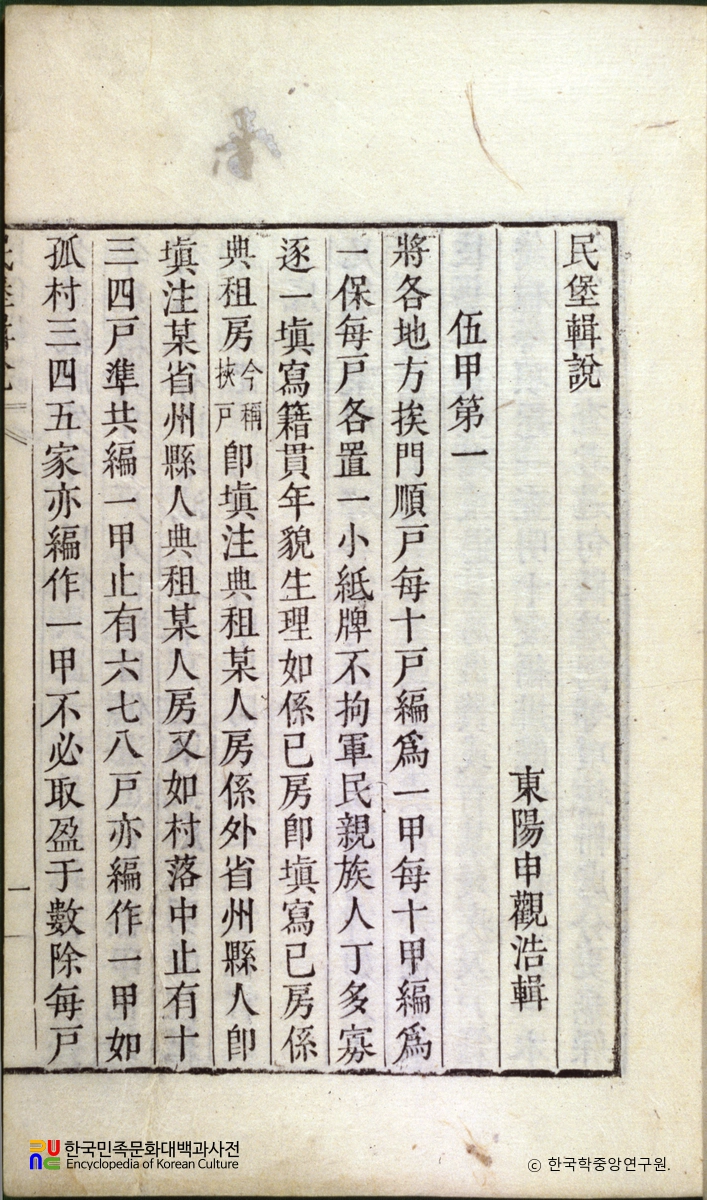 民堡輯說
東陽申觀浩輯
伍甲第一
將各地方挨門順戸每十戸編爲一甲每十甲編爲
一保每戸各置一小紙牌不拘軍民親族人丁多寡
逐一塡寫籍貫年貌生理如係已房卽塡寫已房係
典租房今稱挾戸卽塡注典租某人房係外省州縣人卽
塡注某省州縣人典租某人房又如村落中止有十
三四戸準共編一甲止有六七八戸亦編作一甲如
孤村三四五家亦編作一甲不必取盈于數除每戸
一
한국민족문화대백과사전
Encyclopedia of Korean Culture
© 한국학중앙연구원.